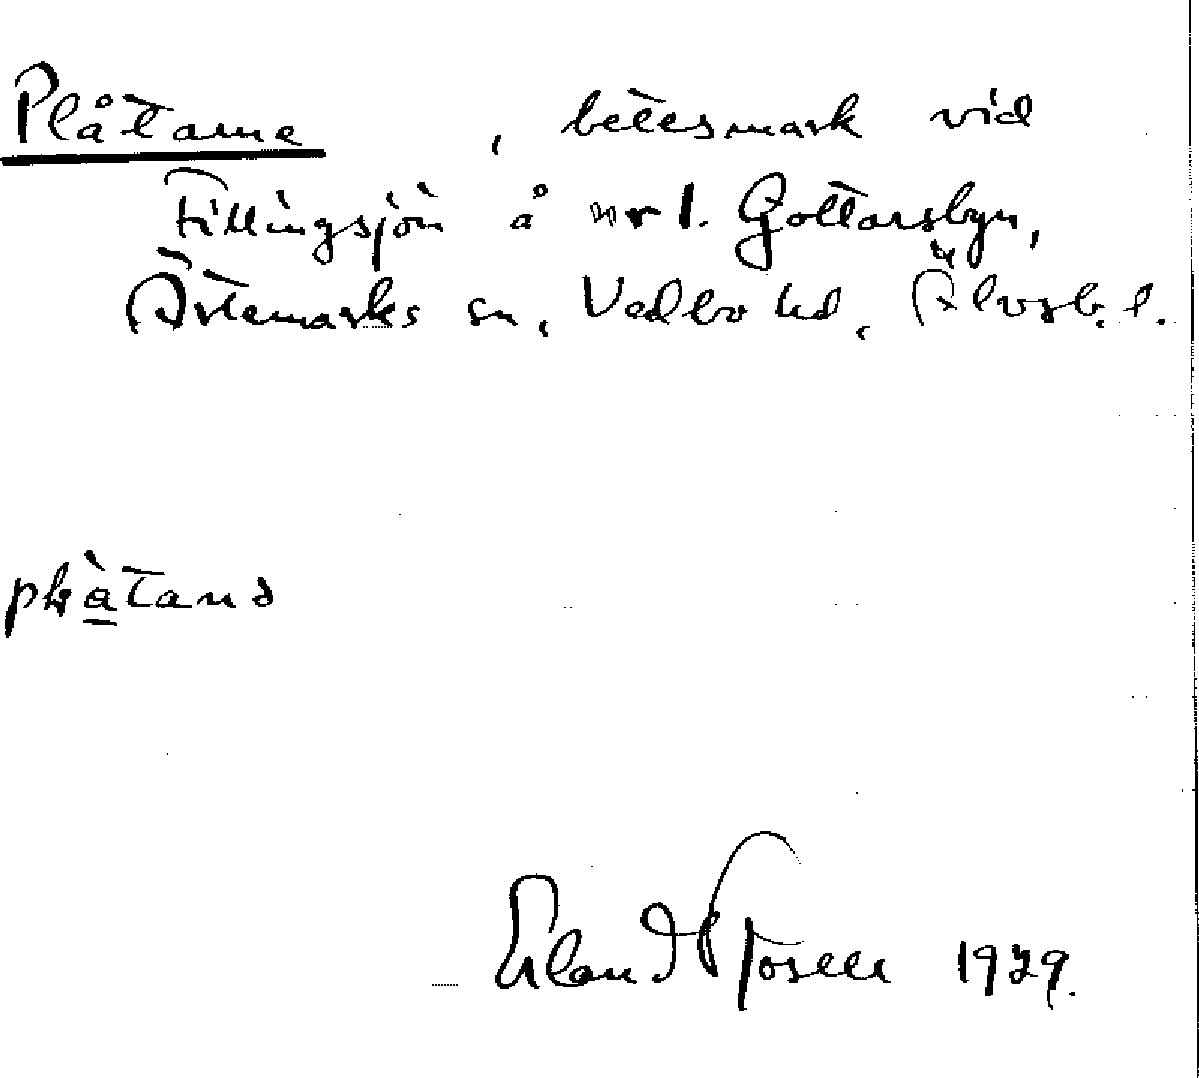 Plåtarne, betesmark vid
Tillingsjön å nr 1. Gottarsbyn,
Ärtemarks sn, Vedbo hd, Älvsb. l.
Erland Rosell 1929.